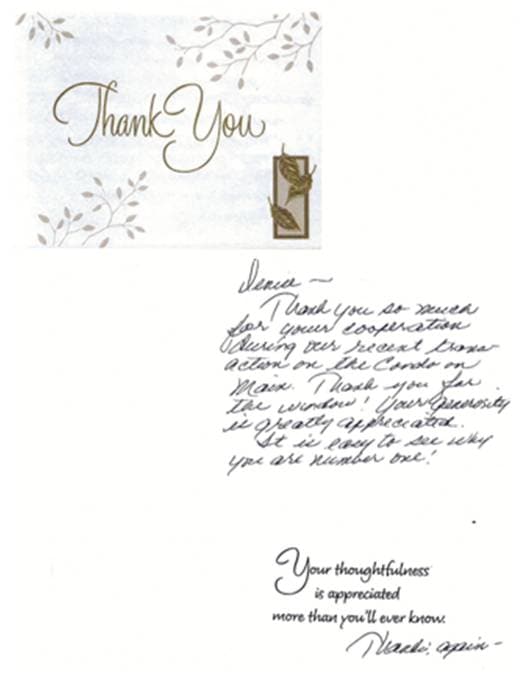 Thank You
Denise ~
Thank you so much
for your cooperation
during our recent trans-
action on the Condo on
Main. Thank you for
the window! Your generosity
is greatly appreciated.
It is easy to see why
you are number one!
Your thoughtfulness
is appreciated
more than you'll ever know.
Thanks, again -